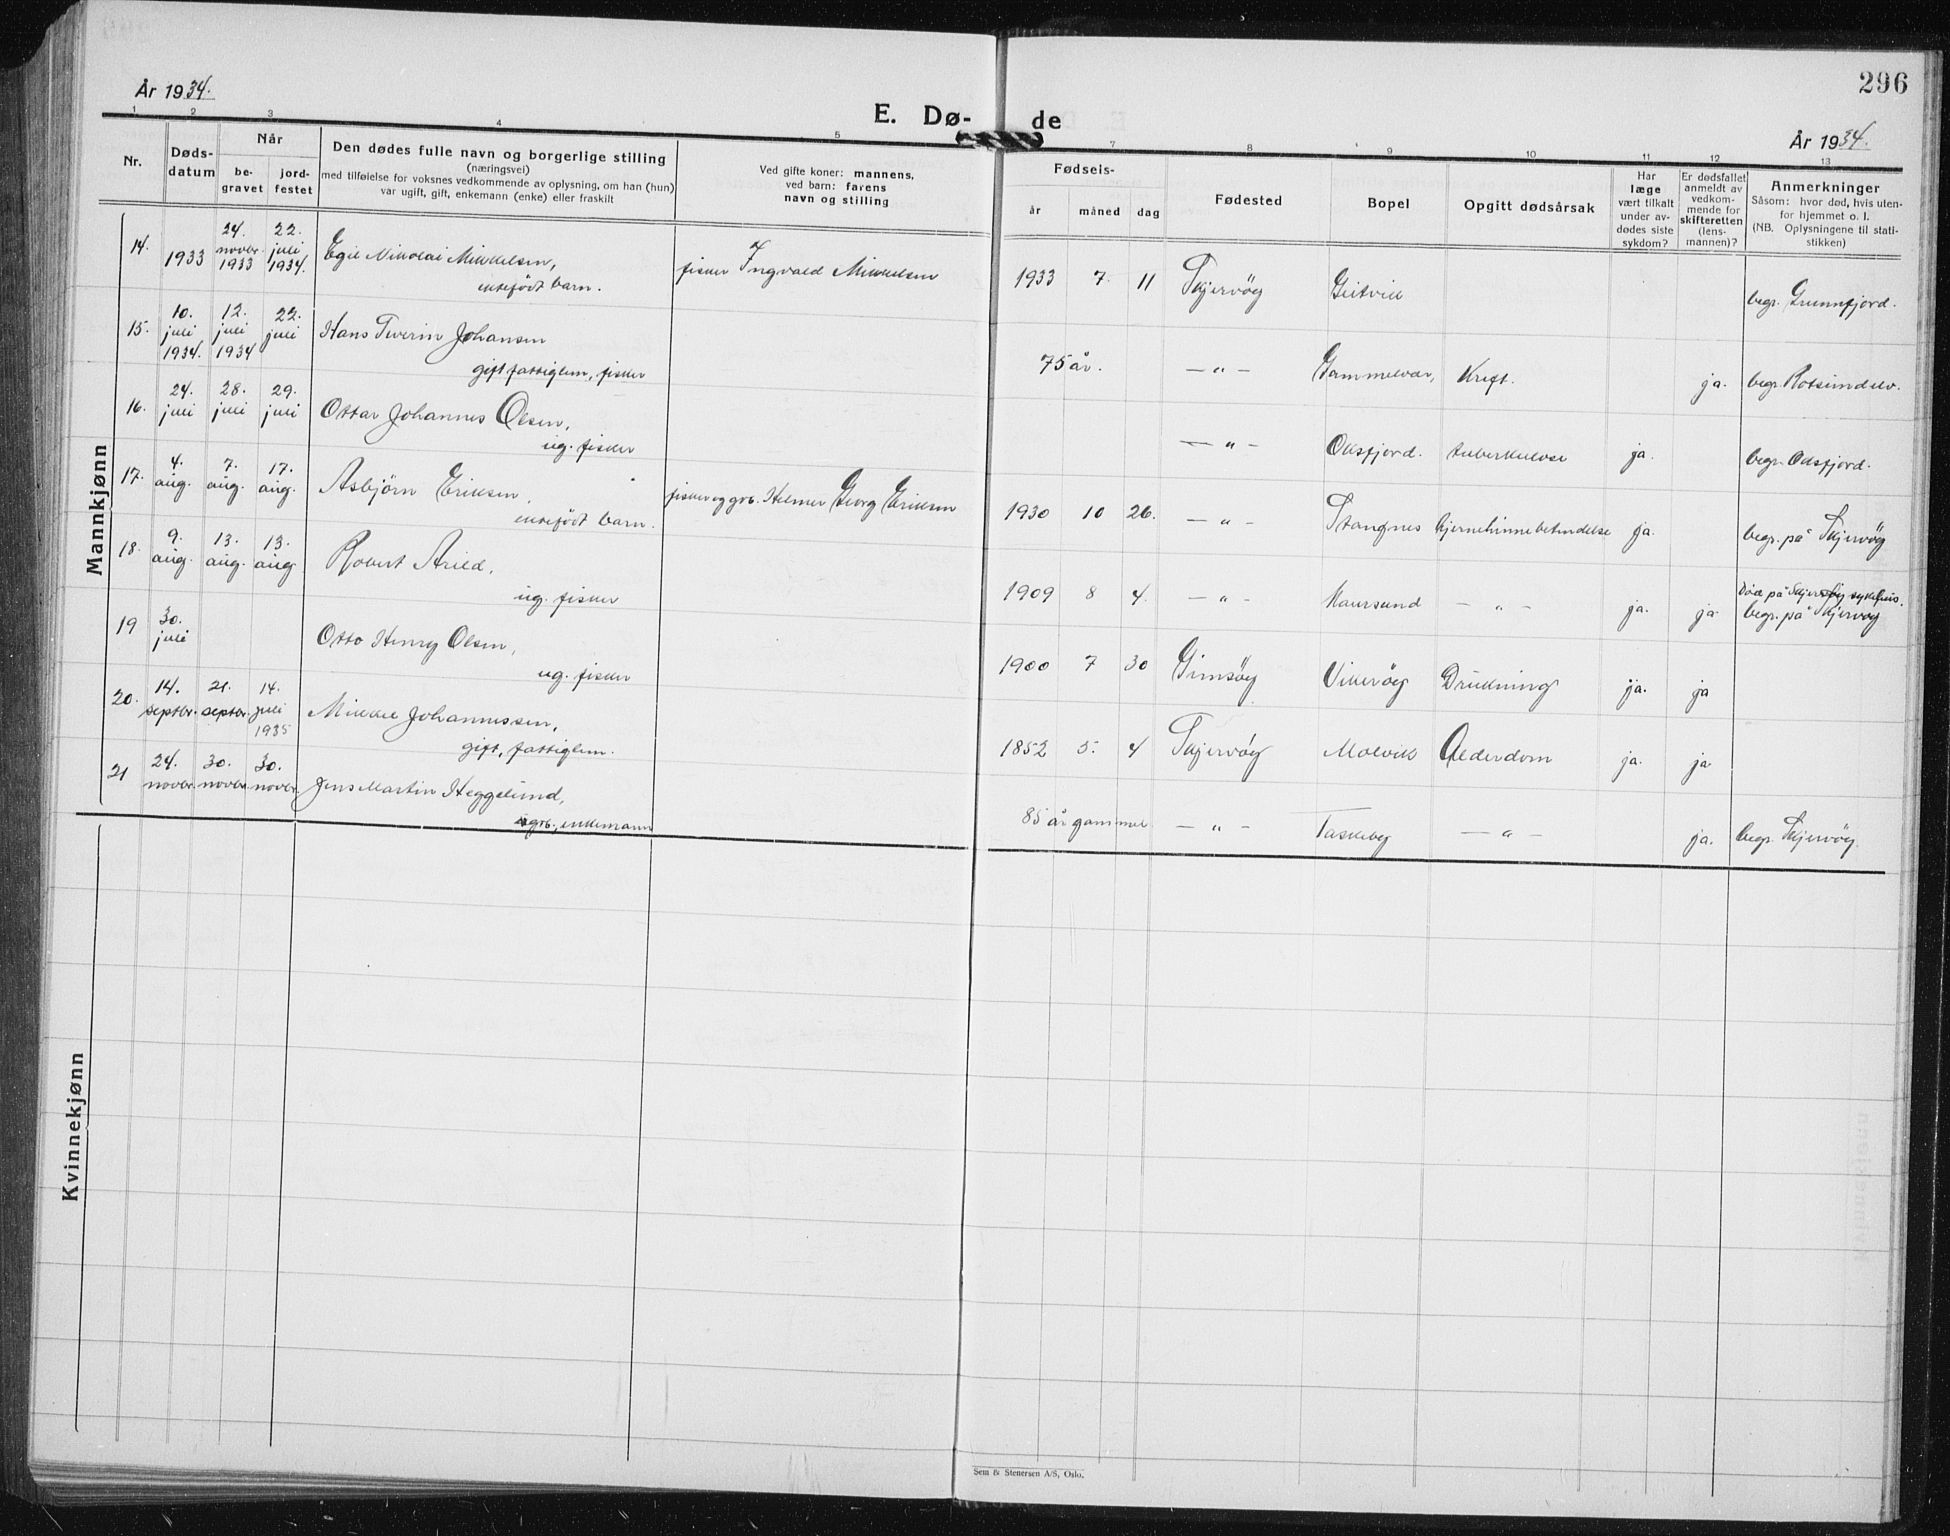 296
År 1934.
E. Dø- de
År 1934.
1 2 3 4 5 7 8 9 10 11 12 13
Nr.
Døds-
datum
Når
be-
gravet
jord-
festet
Den dødes fulle navn og borgerlige stilling
(næringsvei)
med tilføielse for voksnes vedkommende av oplysning, om han (hun)
var ugift, gift, enkemann (enke) eller fraskilt
Ved gifte koner: mannens,
ved barn: farens
navn og stilling
Fødsels-
år måned dag
Fødested
Bopel
Opgitt dødsårsak
Har
læge
vært tilkalt
under av-
dødes siste
sykdom?
Er dødsfallet
anmeldt av
vedkom-
mende for
skifteretten
(lens-
mannen)?
Anmerkninger
Såsom: hvor død, hvis uten-
for hjemmet o. l.
(NB. Oplysningene til stati-
stikken)
Mannkjønn
14. 1933 24. novbr. 1933 22. juli 1934. Egil Nikolai Mikkelsen, fisker Ingvald Mikkelsen 1933 7. 11 Skjervöy Geitvik begr. Grunnfjord.
ektefödt barn.
15. 10. juli 1934. 12. juli 1934 22. juli Hans Severin Johansen 75 år. — " — Gammelvær, Kreft. ja. begr. Rotsundelv.
gift fattiglem, fisker
16. 24. juli 28. juli 29. juli Ottar Johannes Olsen, — " — Oksfjord. tuberkulose ja. begr. Oksfjord.
ug. fisker
17. 4. aug. 7. aug. 17. aug. Asbjörn Eriksen, fisker og grb. Helmer Georg Eriksen 1930 10 26. — " — Stangnes hjernehinnebetendelse ja. begr. på Skjervöy
ektefödt barn.
18. 9. aug. 13. aug. 13. aug Robert Arild, 1909 8 4. — " — Maursund — " — ja. ja. Död på Skjervöy sykehus.
begr. på Skjervöy
ug. fisker
19 30. juli Otto Henry Olsen, 1900 7 30 Gimsöy Vikeröy Drukning ja. ja
ug. fisker
20. 14. septbr. 21. septbr. 14. juli 1935 Mikkel Johannessen, 1852 5. 4 Skjervöy Molvik Alderdom ja. ja
gift, fattiglem.
21 24. novbr. 30. novbr. 30. novbr. Jens Martin Heggelund, 85 år gammel — " — Taskeby — " — ja. begr. Skjervöy.
grb., enkemann
Kvinnekjønn
Sem & Stenersen A/S, Oslo.